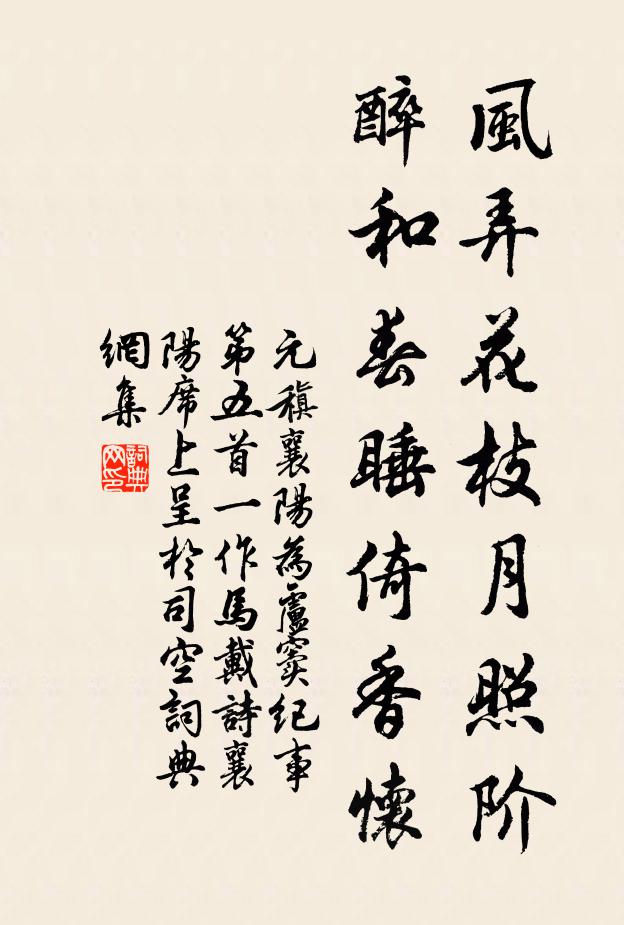 風弄花枝月照阶
醉和春睡倚香懷
元稹襄陽為盧竇纪事
第五首一作馬戴詩襄
陽席上呈於司空詞典
網集
詞典網印